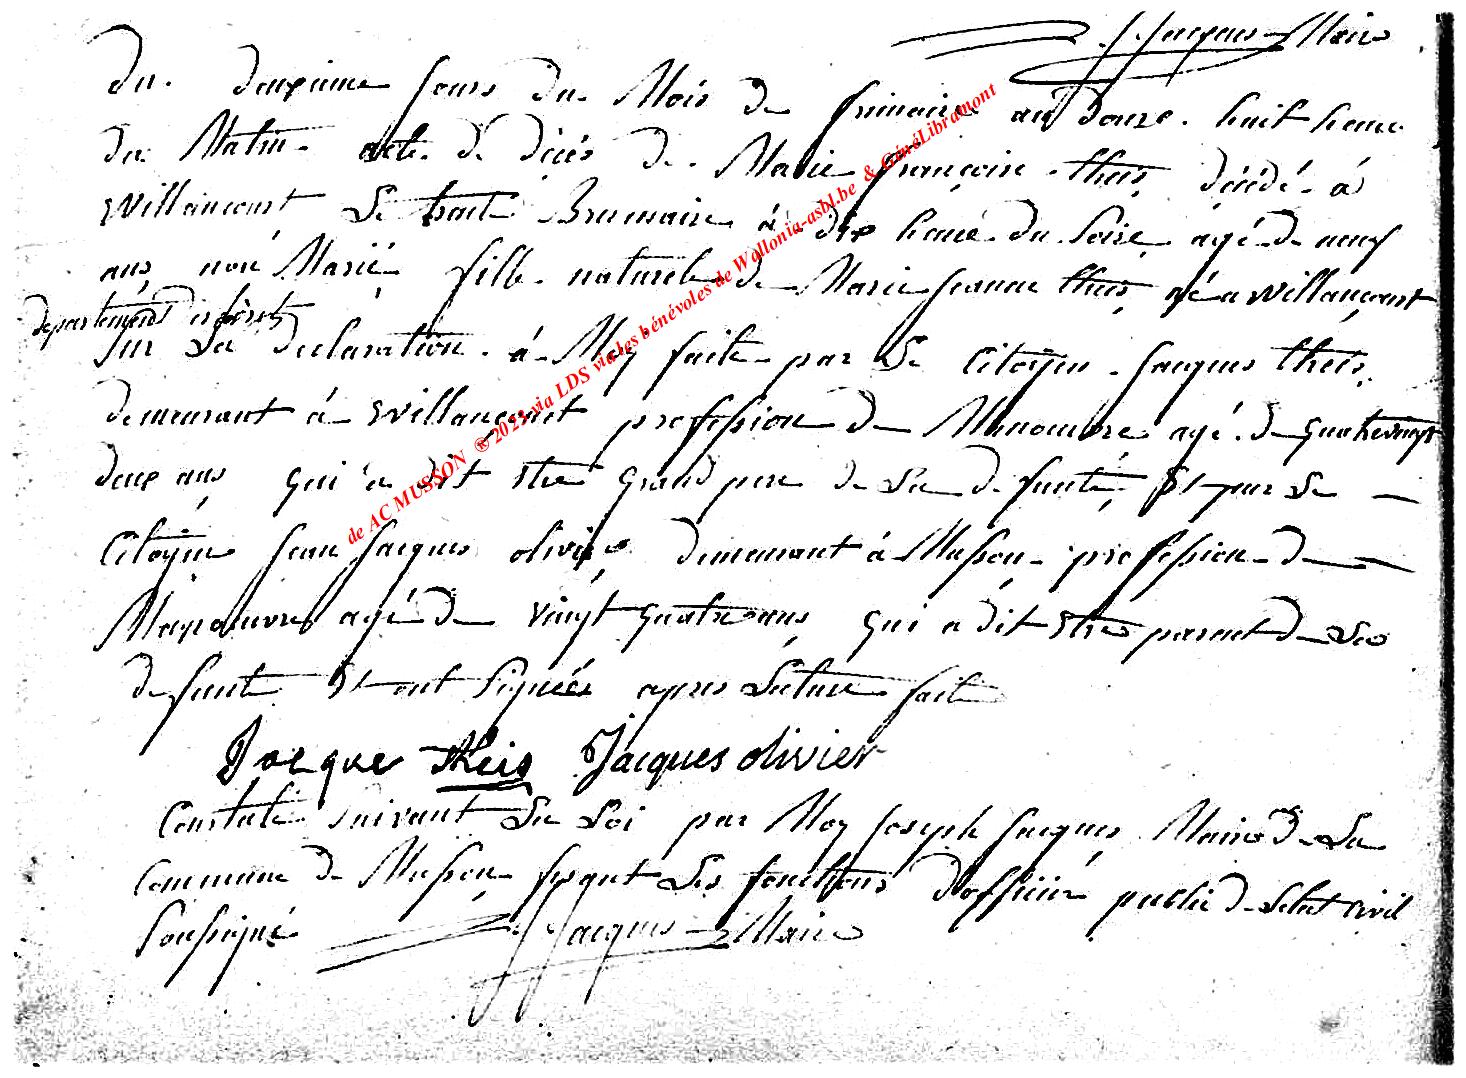 J. Jacques Maire
du deuxieme Jours du Mois de frimaire an Douze huit heure
du Matin acte de décés de Marie françoise theis décédé á
Willancourt Le trente Brumaire á dix heure du Soire agé de neuf
ans non Marié fille naturele de Marie Jeanne theis né a Willancourt
departement des forets
Sur La declaration á Moy faite par Le Citoyen Jacques theis
demeurant á Willancourt profession de Manouvre agé de quatrevingt
deux ans qui a dit etre grand pere de La defunte Et par Le
Citoyen Jean Jacques olivier demeurant á Musson profession de
Manouvre agé de vingt quatre ans qui a dit etre parent de La
defunte Et ont Signés apres Lecture faite
Jacque theis Jacques olivier
Constaté Suivant La Loi par Moy Joseph Jacques Maire de La
Commune de Musson fesant Les fonctions d'officier public de Letat Civil
Soussigné J. Jacques Maire
de AC MUSSON ® 2023 via LDS via les bénévoles de Wallonia-asbl.be & GénéLibramont